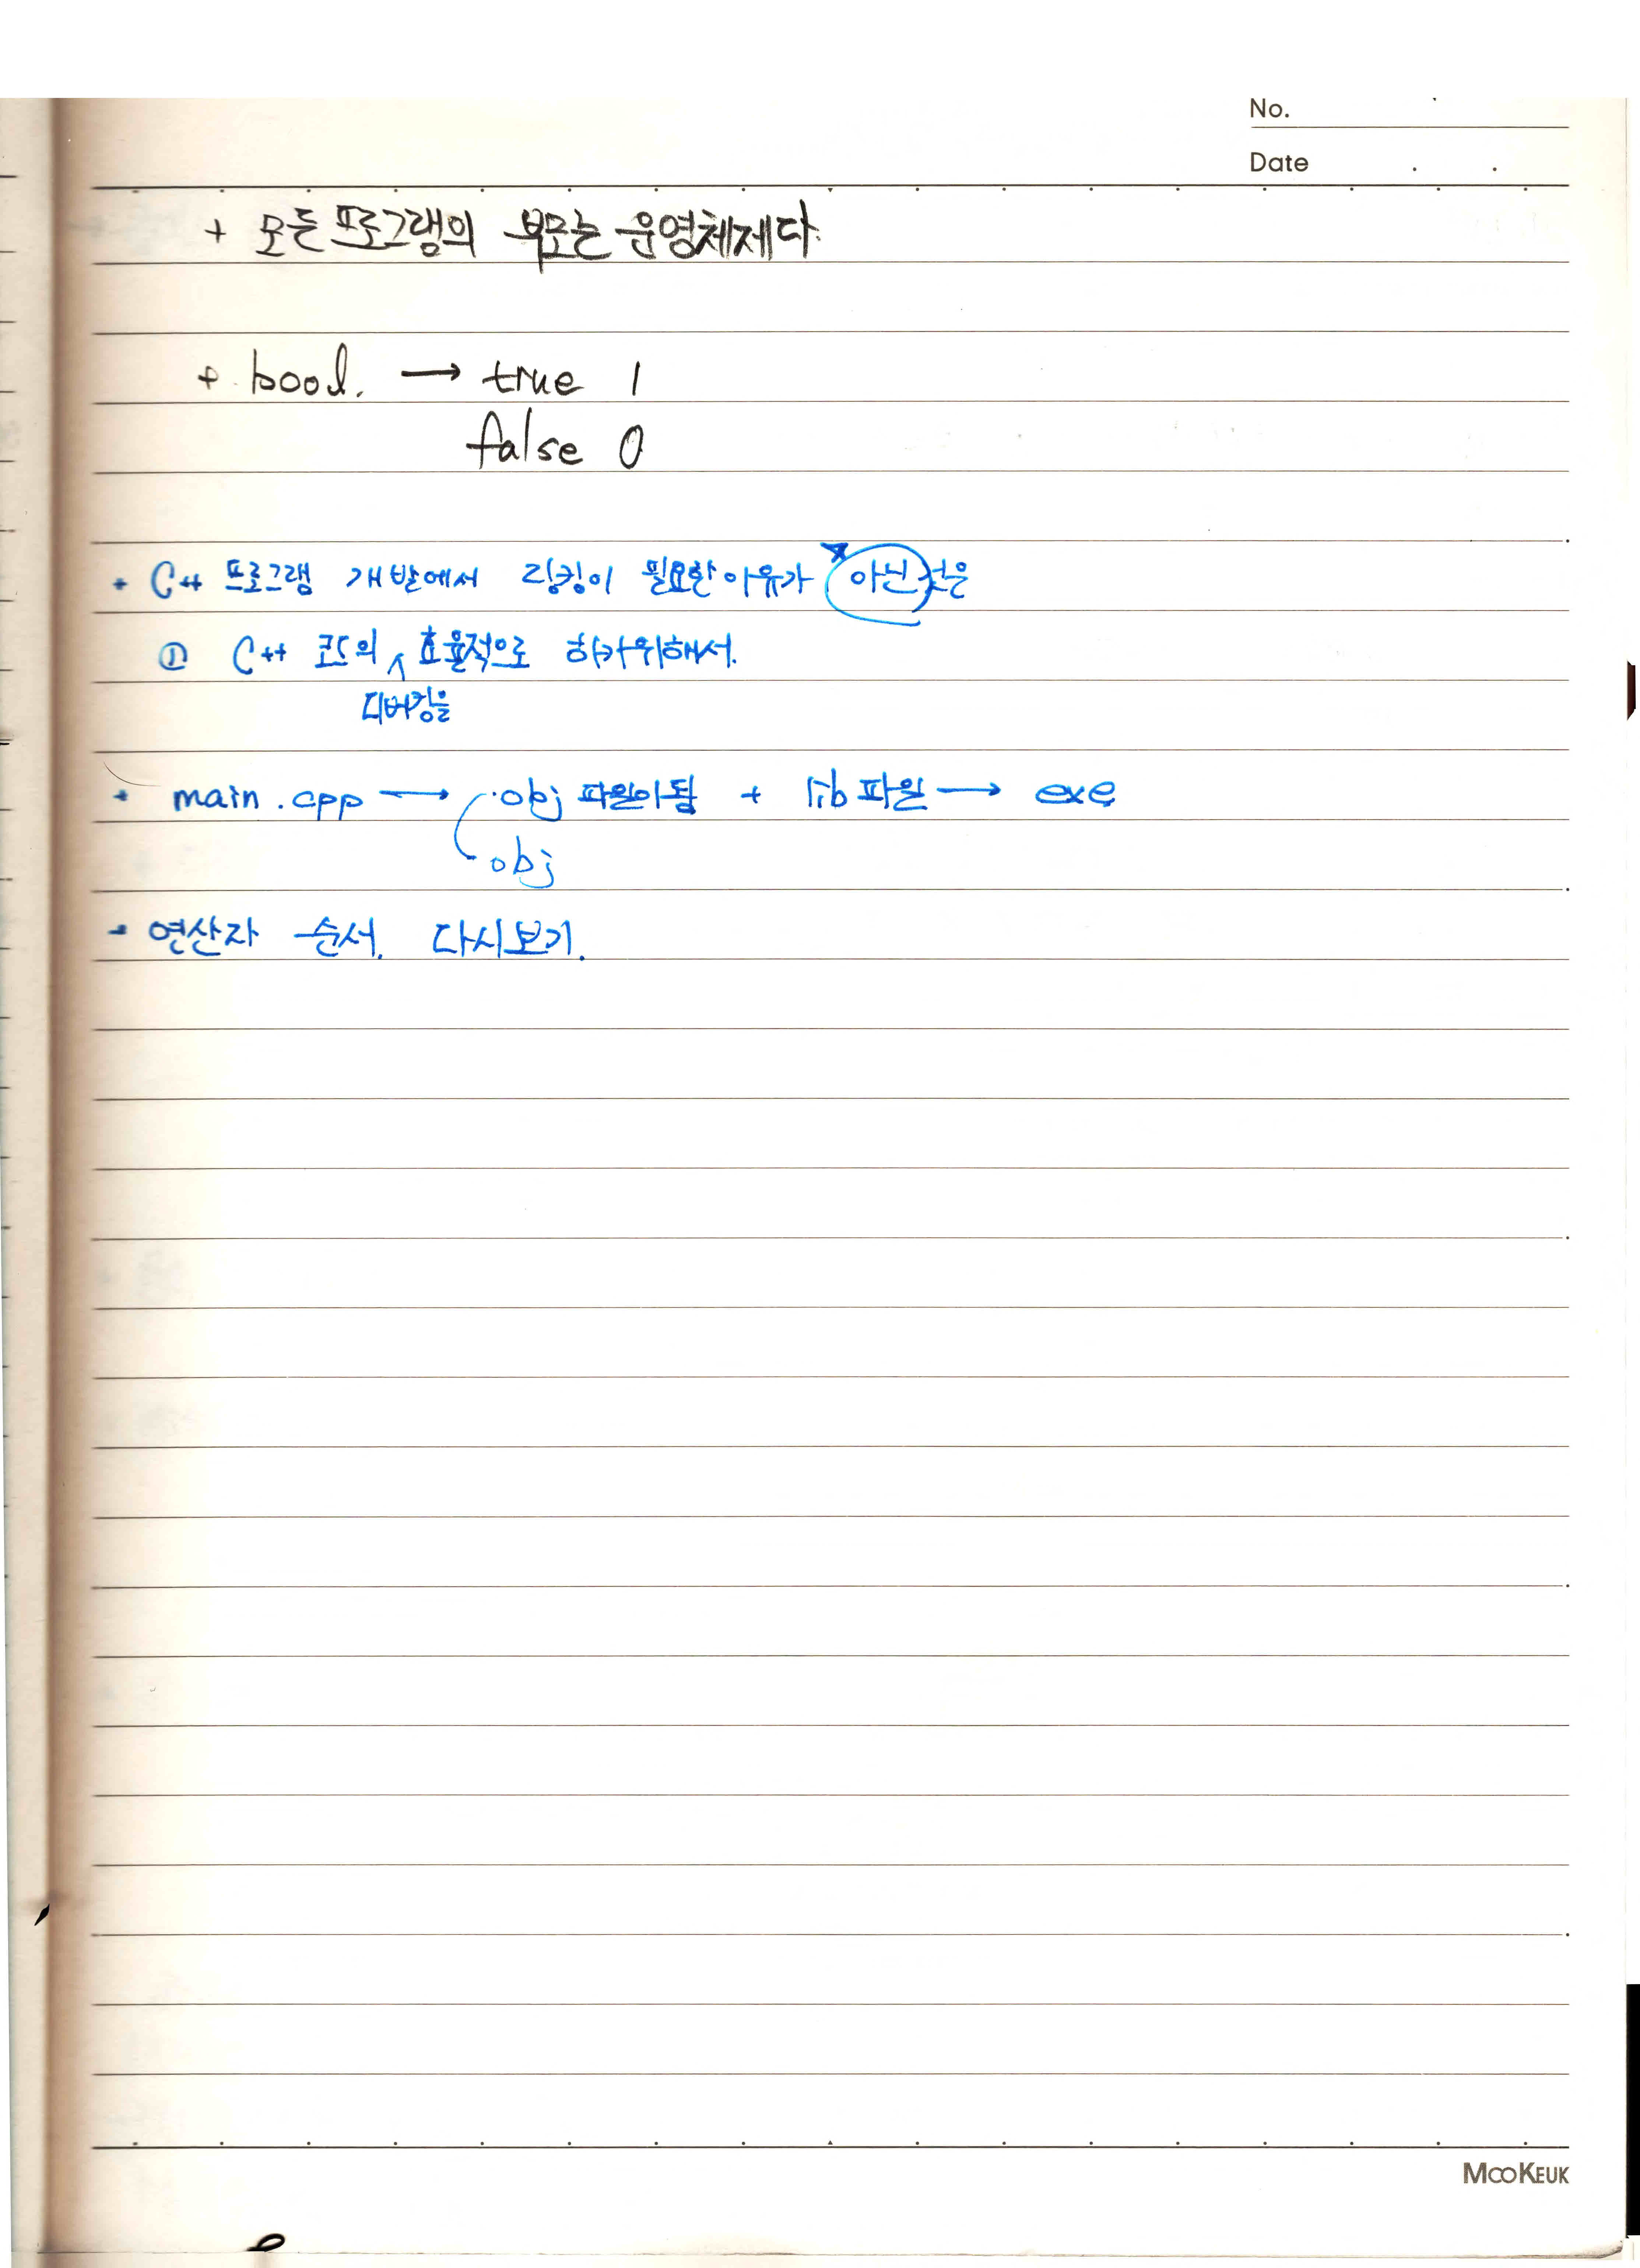 No.
Date . .
+ 모든 프로그램의 부모는 운영체제다.
+ bool. → true 1
false 0
+ C++ 프로그램 개발에서 링킹이 필요한 이유가 아닌 것은
① C++ 코드의 ∧ 효율적으로 하기위해서.
디버깅을
+ main.cpp → .obj 파일이됨 + lib 파일 → exe
obj
- 연산자 순서. 다시보기.
MOOKEUK